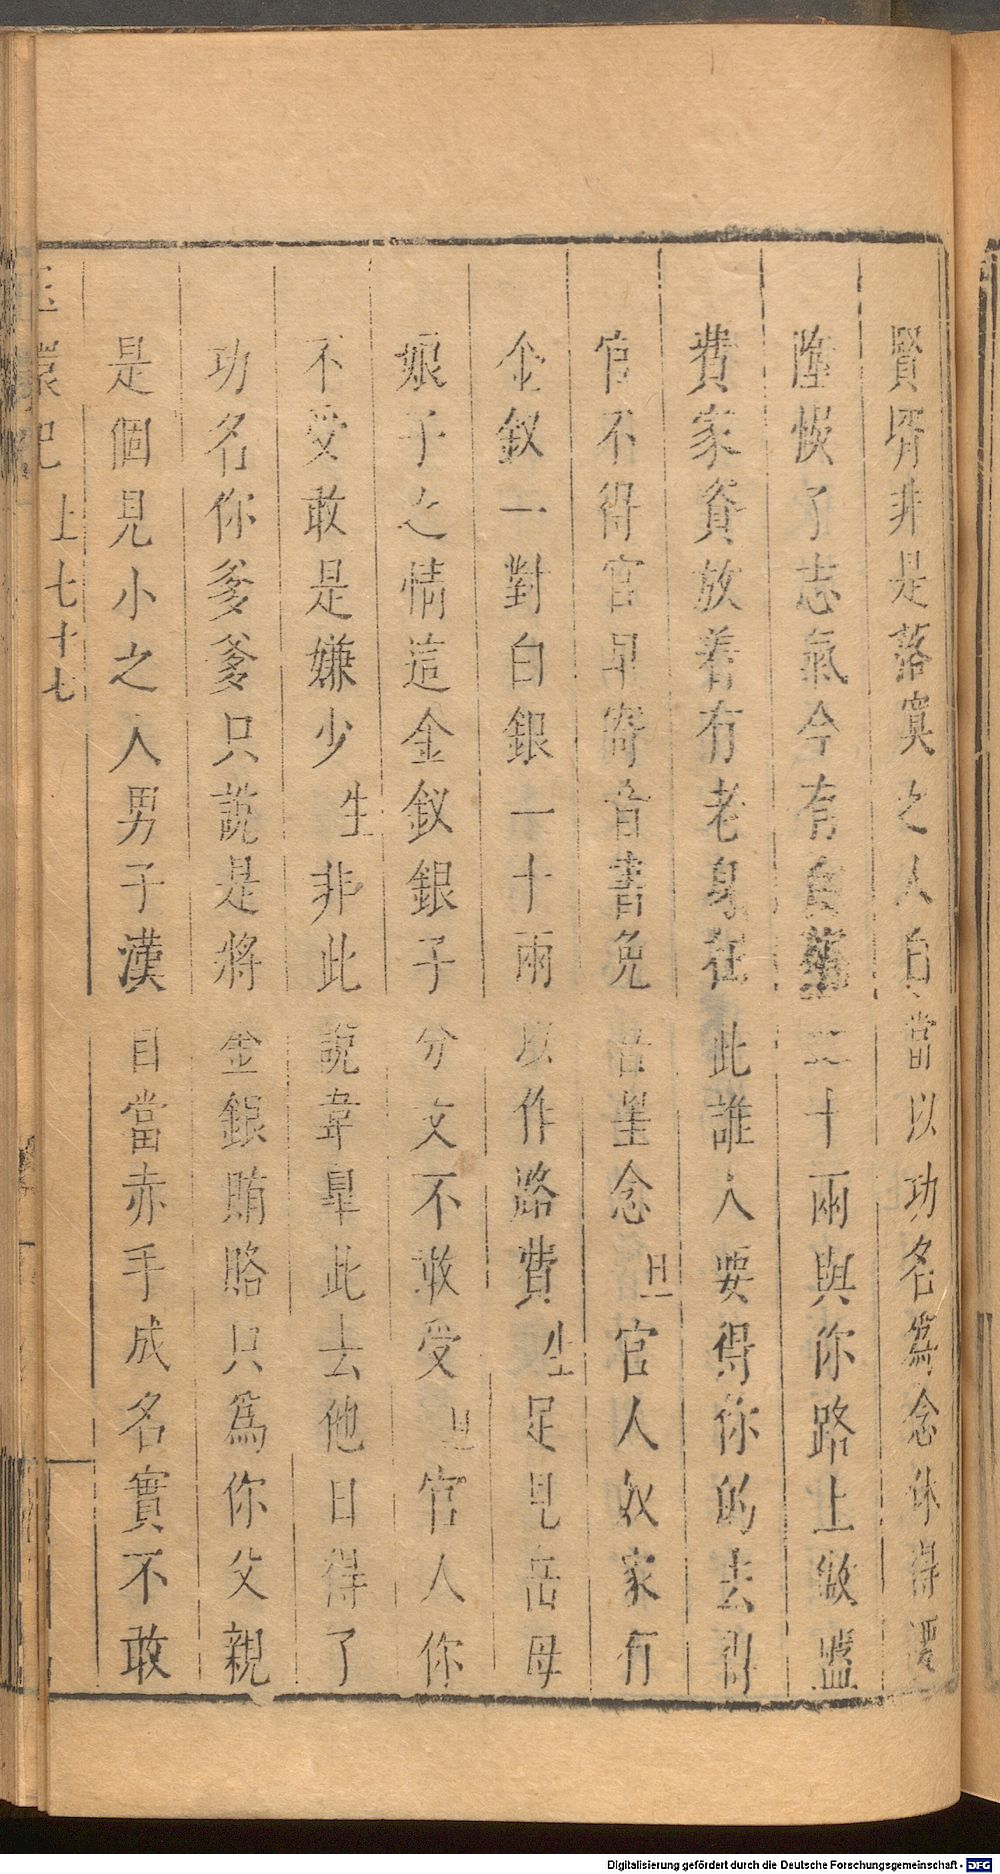 賢壻非是落寞之人自當以功名爲念休得漫
墮恢了志氣今有白銀二十兩與你路上做盤
費家貧放着有老身在此誰人要得你的去得
官不得官早寄音書免者里念旦官人奴家有
金釵一對白銀一十兩以作路費生足見岳母
娘子之情這金釵銀子分文不敢受旦官人你
不受敢是嫌少生非此說韋臯此去他日得了
功名你爹爹只說是將金銀賄賂只爲你父親
是個見小之人男子漢自當赤手成名實不敢
玉環記上七十七
Digitalisierung gefördert durch die Deutsche Forschungsgemeinschaft - DFG